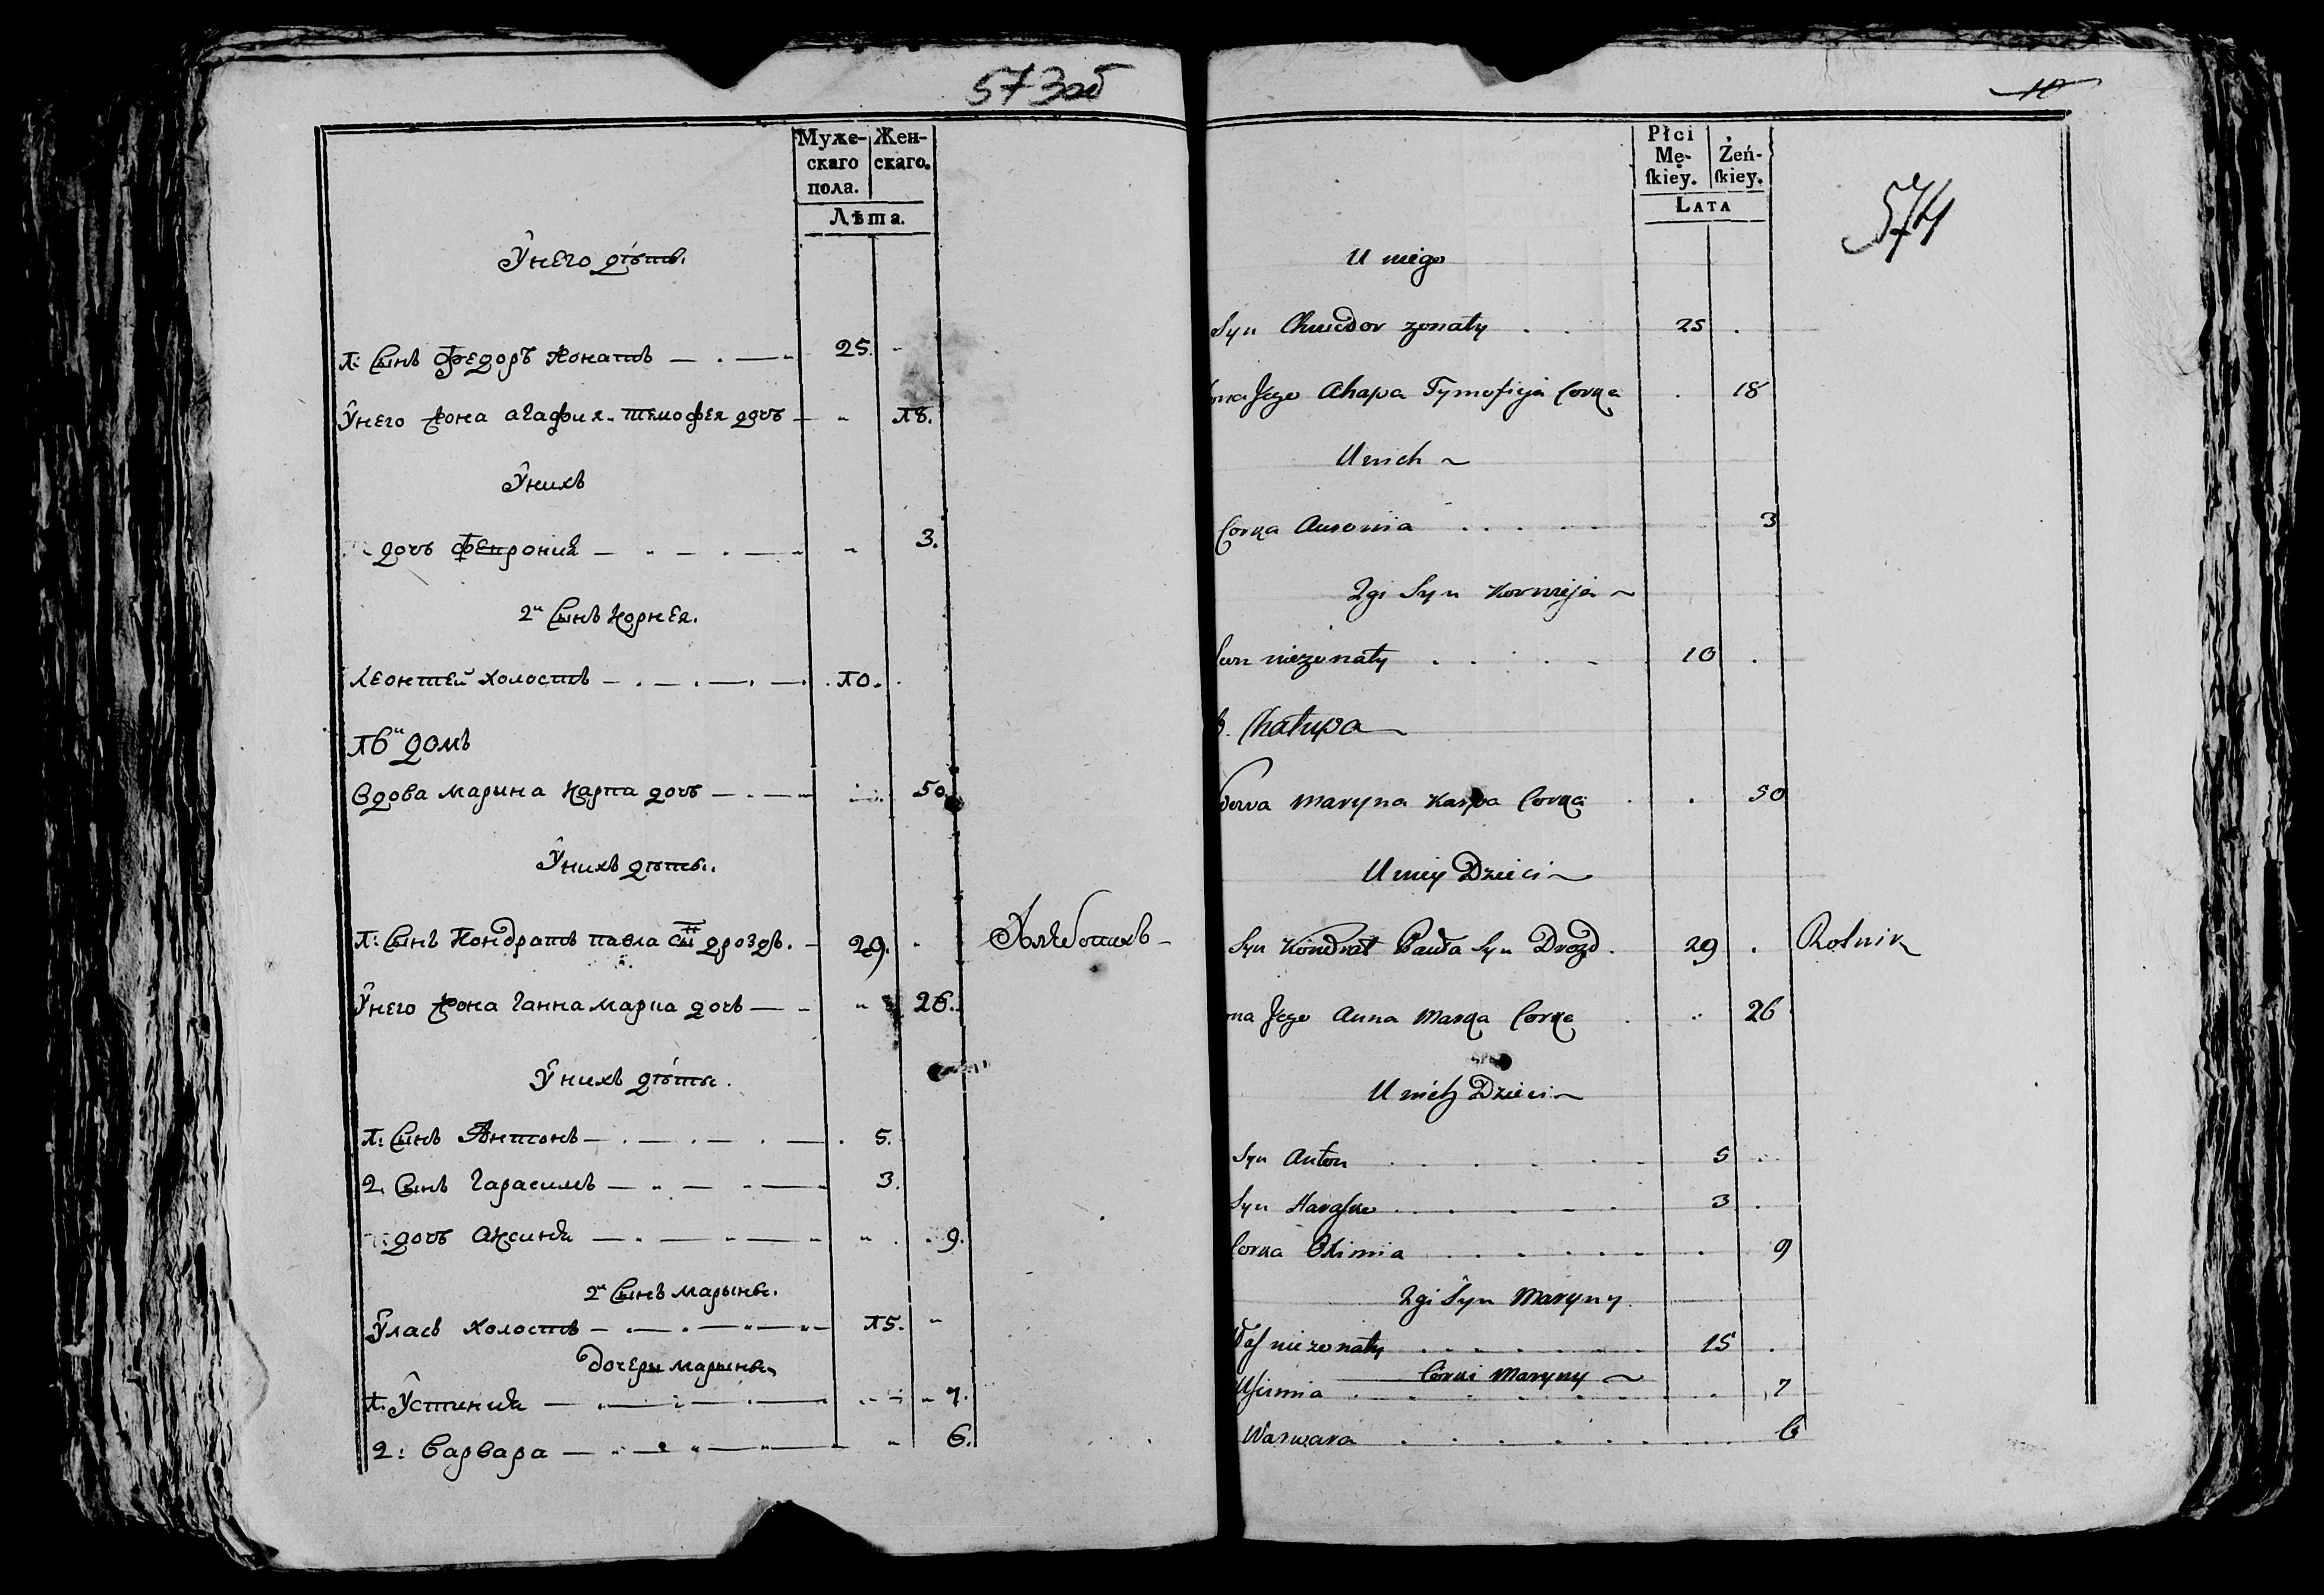 573 об
Муже-
скаго
пола.
Жен-
скаго.
Лѣта.
Ȳнего дѣты.
1: Сынъ Федоръ Жонатъ 25.
Ȳнего жона агафия тимофея дочь 18.
Ȳнихъ
дочь Феврония 3.
2й Сынъ Корнея.
леонтей холостъ 10.
16й домъ
Вдова марина Карпа дочь 50
Ȳнихъ дѣты.
1: Сынъ Кондратъ павла сынъ дроздъ. 29. Хлѣбопахъ
Ȳнего жона ганна марка дочь 26.
Ȳнихъ дѣты.
1: Сынъ Антонъ 5.
2. Сынъ Гарасимъ 3.
дочь Аксиния 9.
2й Сынъ марыны.
Ȳласъ холостъ 15.
дочеры марыны
1. Ȳстиния 7.
2: Варвара 6.
10
574
Płci
Mę-
ſkiey.
Żeń-
ſkiey.
LATA
U niego
Syn Chwedor zonaty 25
ona Jego Ahapa Tymofieja Corka 18
U nich
Corka 3
2gi Syn Kornieja
niezonaty 10
6. Chałupa
dowa Maryna Karpa Corka 50
U niey Dzieci
Syn Kondrat Pawła Syn Drozd 29 Rolnik
ona Jego Anna Marka Corka 26
U nich Dzieci
Syn Anton 5
Syn 3
Corka 9
2gi Syn Maryny
niezonaty 15
Corki Maryny
7
Warwara 6